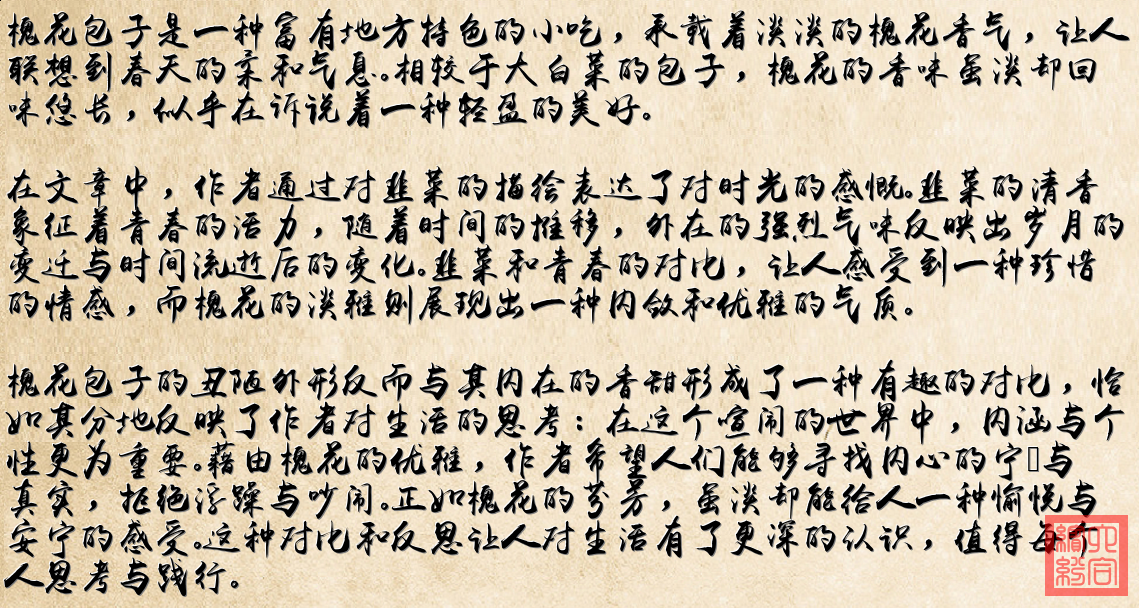 槐花包子是一种富有地方特色的小吃，承载着淡淡的槐花香气，让人
联想到春天的柔和气息。相较于大白菜的包子，槐花的香味虽淡却回
味悠长，似乎在诉说着一种轻盈的美好。
在文章中，作者通过对韭菜的描绘表达了对时光的感慨。韭菜的清香
象征着青春的活力，随着时间的推移，外在的强烈气味反映出岁月的
变迁与时间流逝后的变化。韭菜和青春的对比，让人感受到一种珍惜
的情感，而槐花的淡雅则展现出一种内敛和优雅的气质。
槐花包子的丑陋外形反而与其内在的香甜形成了一种有趣的对比，恰
如其分地反映了作者对生活的思考：在这个喧闹的世界中，内涵与个
性更为重要。藉由槐花的优雅，作者希望人们能够寻找内心的宁与
真实，拒绝浮躁与吵闹。正如槐花的芬芳，虽淡却能给人一种愉悦与
安宁的感受。这种对比和反思让人对生活有了更深的认识，值得每个
人思考与践行。